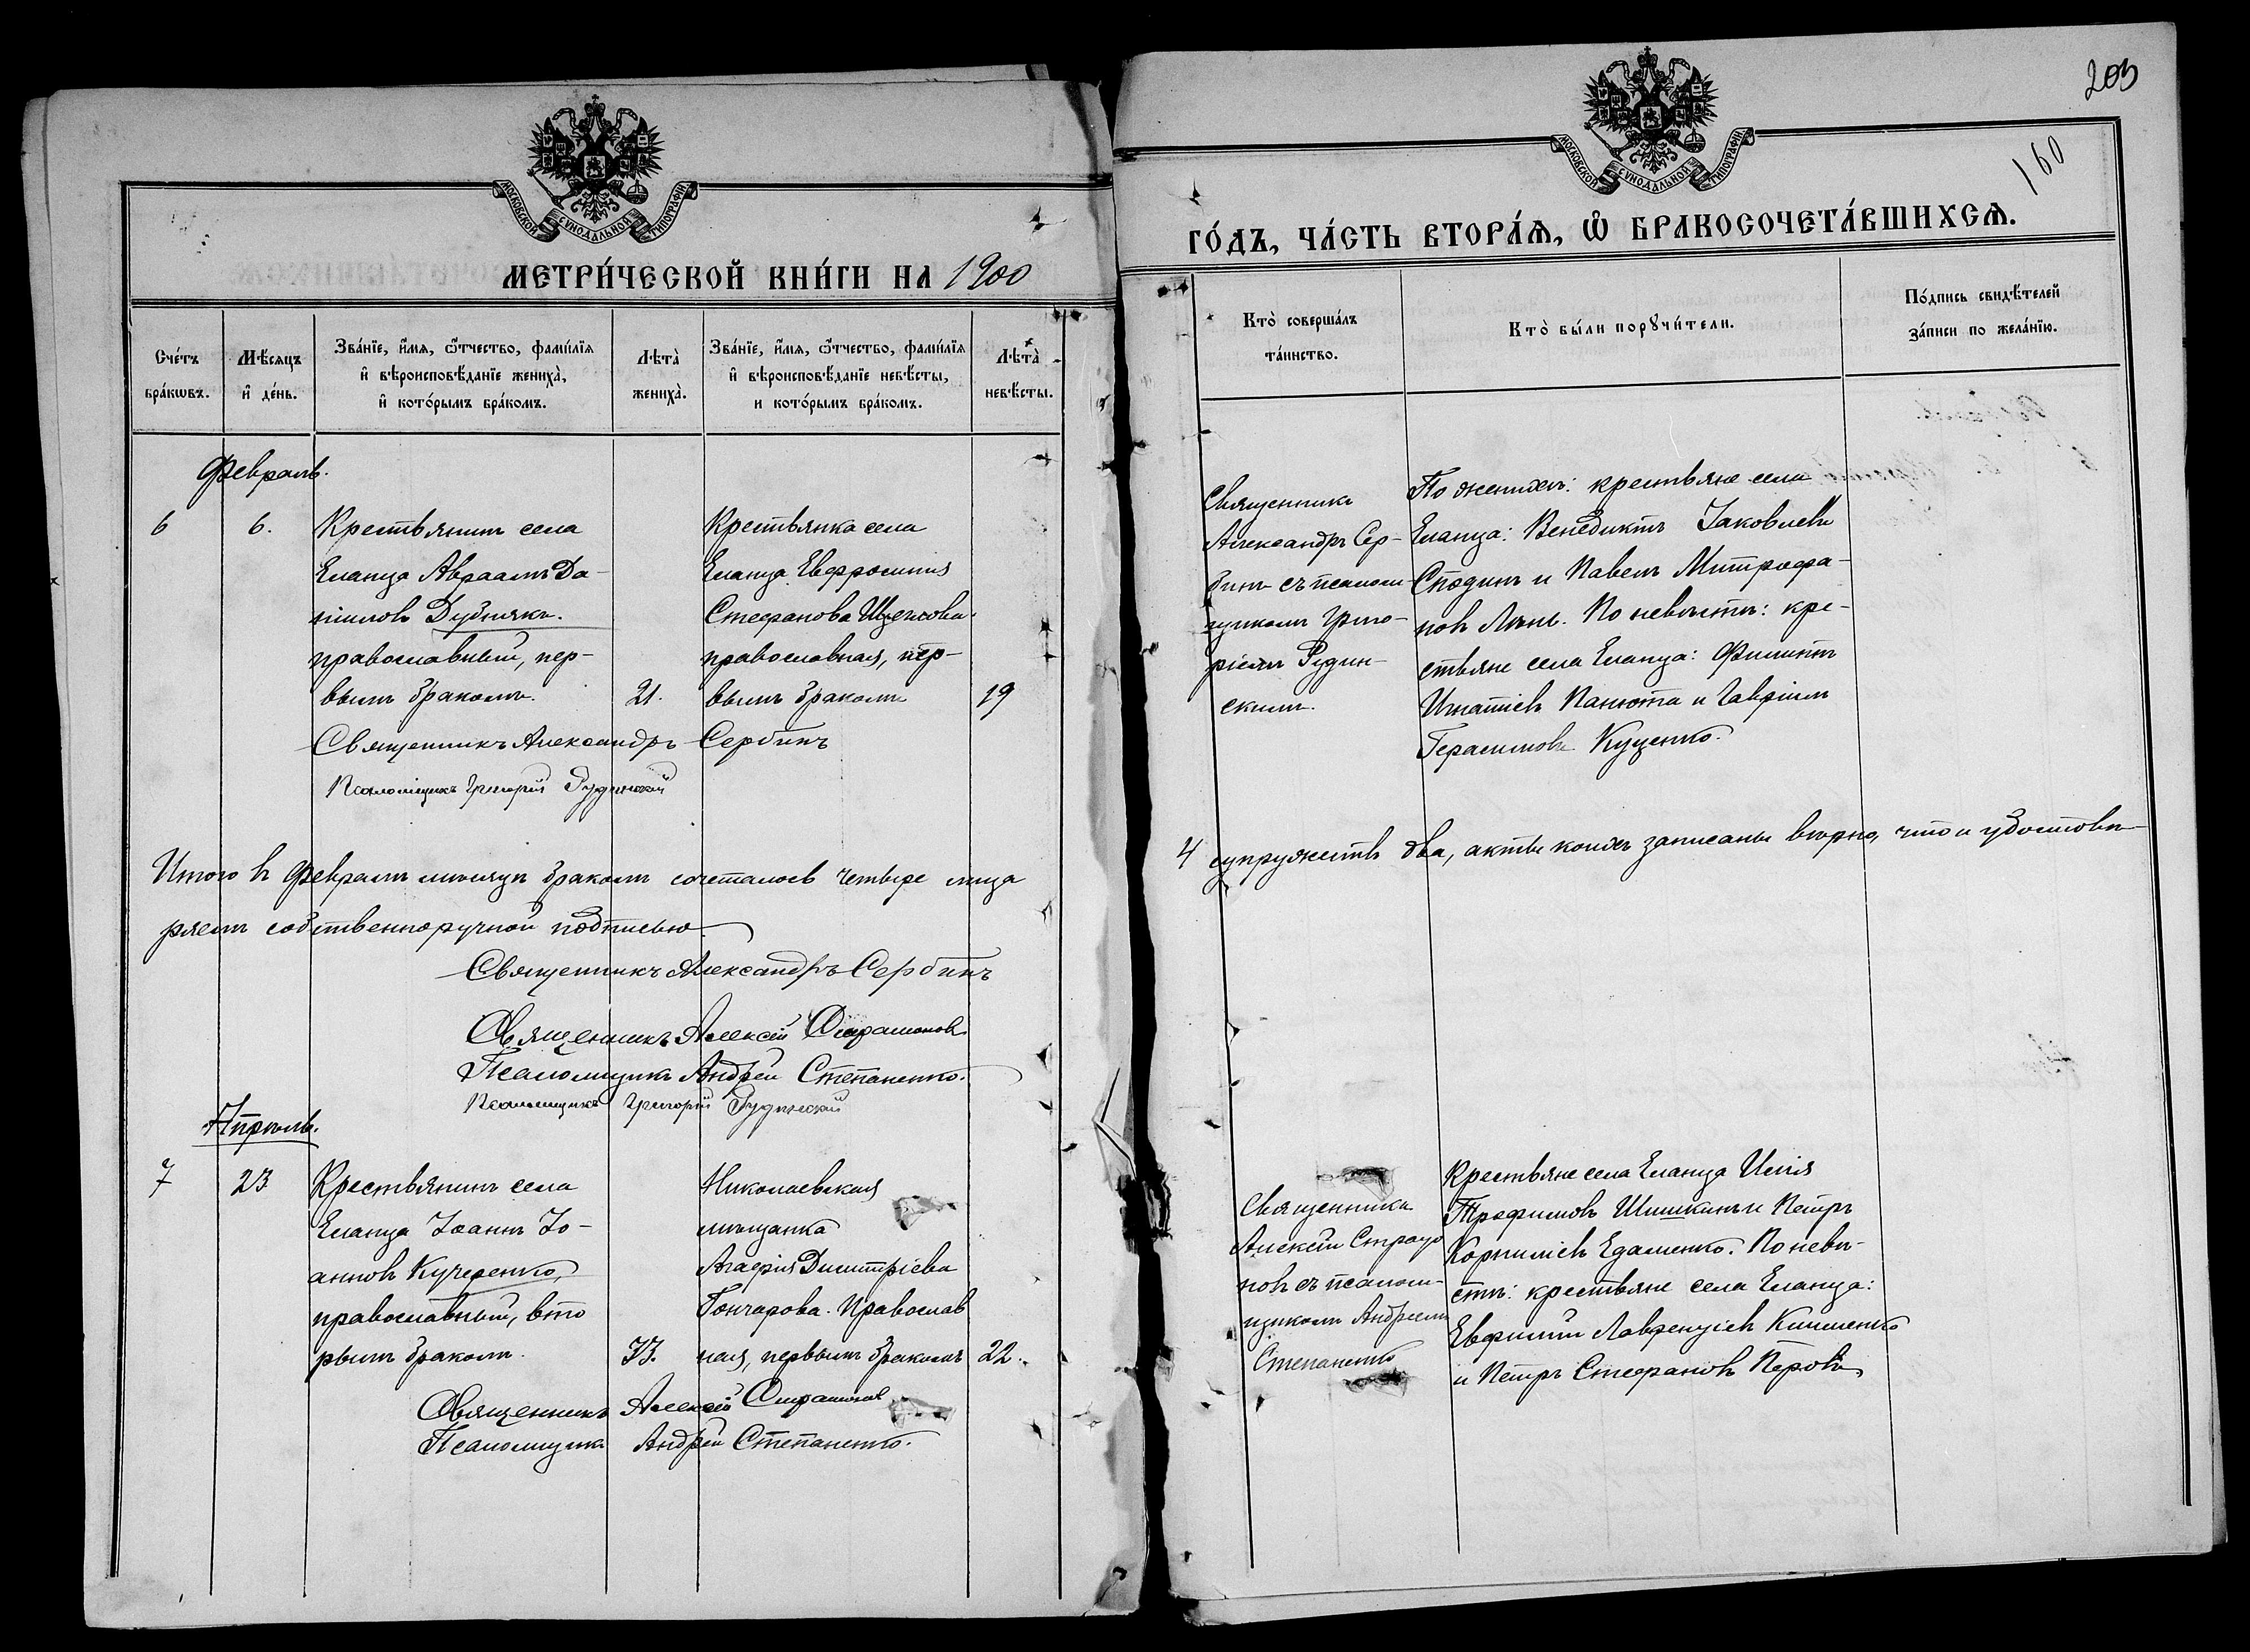 203
160
МОСКОВСКОЙ СѴНОДАЛЬНОЙ ТИПОГРАФІИ
МЕТРИ́ЧЕСКОЙ КНИ́ГИ НА 1900
Сче́тъ бра́кѡвъ.
Мѣ́сяцъ и҆ де́нь.
Зва́нїе, и҆́мя, ѻ҆́тчество, фами́лїя
и҆ вѣроисповѣ́данїе жениха̀,
и҆ кото́рымъ бра́комъ.
Лѣта̀ жениха̀.
Зва́нїе, и҆́мя, ѻ҆́тчество, фами́лїя
и҆ вѣроисповѣ́данїе невѣ́сты,
и кото́рымъ бра́комъ.
Лѣта̀ невѣ́сты.
Февраль.
6
6.
Крестьянинъ села
Еланца Авраамъ Да-
ніиловъ Дубнякъ.
православный, пер-
вымъ бракомъ.
21.
Крестьянка села
Еланца Евфросинія
Стефанова
православная, пер-
вымъ бракомъ
19
Священникъ Александръ Сербинъ
Псаломщикъ Григорій Рудинскій
Итого въ Февралѣ мѣсяцѣ бракомъ сочеталось четыре лица
ряемъ собственноручной подписью
Священникъ Александръ Сербинъ
Священникъ Алексей
Псаломщикъ Андрей Степаненко.
Псаломщикъ Григорій Рудинскій
Апрѣль.
7
23
Крестьянинъ села
Еланца Іоаннъ Іо-
анновъ Кучеренко,
православный, вто
рымъ бракомъ.
33.
Николаевская
мѣщанка
Агафія Димитріева
Гончарова. Православ
ная, первымъ бракомъ
22.
Священникъ Алексей
Псаломщикъ Андрей Степаненко.
МОСКОВСКОЙ СѴНОДАЛЬНОЙ ТИПОГРАФІИ
ГО́ДЪ, ЧА́СТЬ ВТОРА́Я, Ѽ БРАКОСОЧЕТА́ВШИХСЯ.
Кто̀ соверша́лъ
та́инство.
Кто̀ бы́ли порꙋчи́тели.
По́дпись свидѣ́телей
за́писи по жела́нїю.
Священникъ
Александръ Сер-
бинъ съ псалом-
щикомъ Григо-
ріемъ Рудин-
скимъ.
По женихѣ: крестьяне села
Еланца: Венедиктъ Іаковлевъ
и Павелъ Митрофа-
новъ По невѣстѣ: кре-
стьяне села Еланца: Филиппъ
Игнатіевъ Панюта и Гавріилъ
Герасимовъ Куценко.
4 супружествъ два, акты коихъ записаны вѣрно, что и удостовѣ-
Священникъ
Алексѣй
новъ съ псалом-
щикомъ Андреемъ
Степаненко
Крестьяне села Еланца Илія
Трофимовъ Шишкинъ и Петръ
Корниліевъ Едаменко. По невѣ-
стѣ: крестьяне села Еланца:
Евфимій Лаврентіевъ Клименко
и Петръ Стефановъ Перовъ